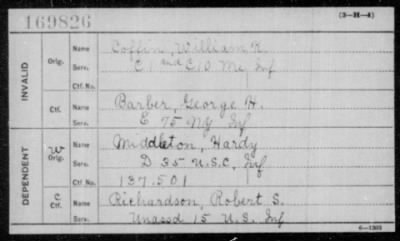 169826 (3-H-4)
INVALID
Orig. Name Coffin, William R.
Serv. C 1 and C 10 Me Inf
Ctf. No.
Ctf. Name Barber, George H.
Serv. E 75 NY Inf
DEPENDENT
W Orig. Name Middleton, Hardy
Serv. D 35 U.S.C. Inf
Ctf No. 137.501
C Ctf. Name Richardson, Robert S.
Serv. Unassd 15 U.S. Inf
6-1303